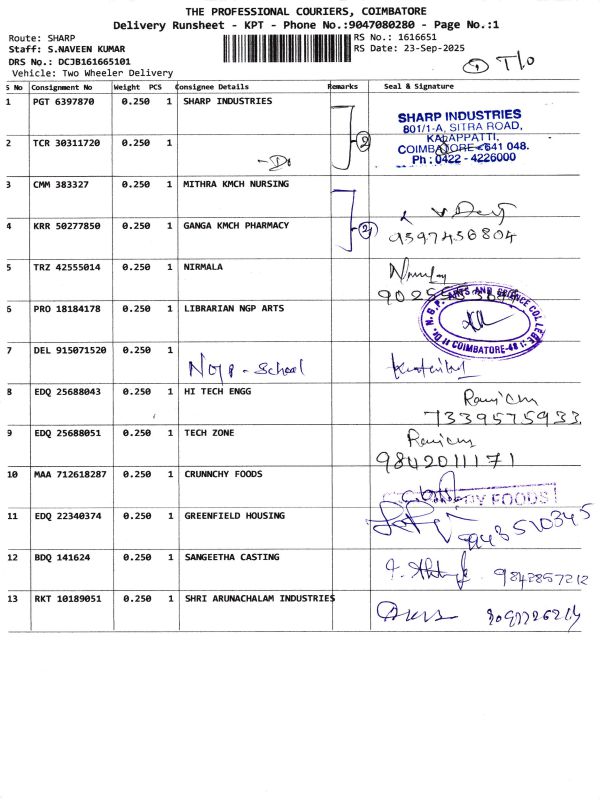 THE PROFESSIONAL COURIERS, COIMBATORE
Delivery Runsheet - KPT - Phone No.:9047080280 - Page No.:1
Route: SHARP
RS No.: 1616651
Staff: S.NAVEEN KUMAR
RS Date: 23-Sep-2025
DRS No.: DCJB161665101
Vehicle: Two Wheeler Delivery
T/o
S No Consignment No Weight PCS Consignee Details Remarks Seal & Signature
1 PGT 6397870 0.250 1 SHARP INDUSTRIES
SHARP INDUSTRIES
801/1-A, SITRA ROAD,
KALAPPATTI,
COIMBATORE - 641 048.
Ph : 0422 - 4226000
2 TCR 30311720 0.250 1
2
3 CMM 383327 0.250 1 MITHRA KMCH NURSING
4 KRR 50277850 0.250 1 GANGA KMCH PHARMACY
2
9597456804
5 TRZ 42555014 0.250 1 NIRMALA
6 PRO 18184178 0.250 1 LIBRARIAN NGP ARTS
Dr. N.G.P. ARTS AND SCIENCE COLLEGE
COIMBATORE-48
7 DEL 915071520 0.250 1
School
8 EDQ 25688043 0.250 1 HI TECH ENGG
7339575933
9 EDQ 25688051 0.250 1 TECH ZONE
9842011171
10 MAA 712618287 0.250 1 CRUNNCHY FOODS
FOODS
11 EDQ 22340374 0.250 1 GREENFIELD HOUSING
12 BDQ 141624 0.250 1 SANGEETHA CASTING
9842857212
13 RKT 10189051 0.250 1 SHRI ARUNACHALAM INDUSTRIES